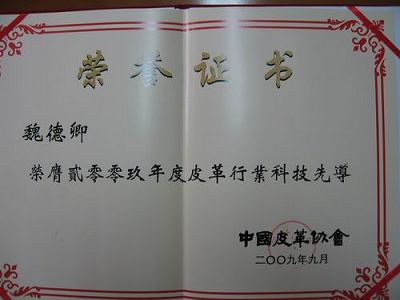 荣誉证书
魏德卿
榮膺貳零零玖年度皮革行業科技先導
中國皮革协會
二〇〇九年九月